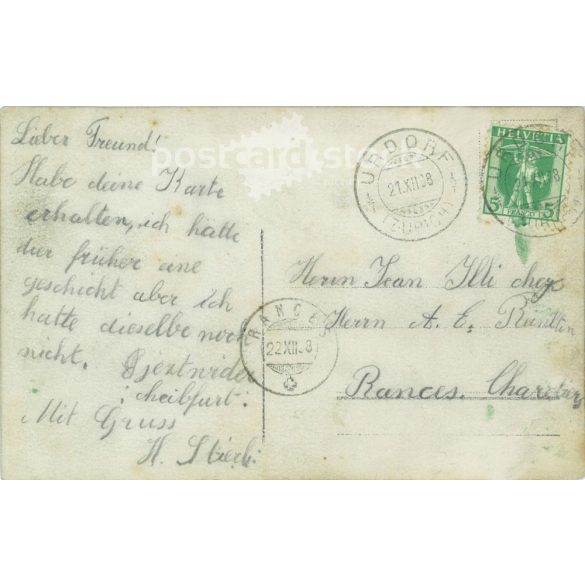 Lieber Freund!
Habe deine Karte
erhalten, ich hätte
dir früher eine
geschickt aber ich
hatte dieselbe noch
nicht.
Mit Gruss
H.
postcard
URDORF
21.XII.08
(ZÜRICH)
HELVETIA
5 FRANCO 5
RANCES
22.XII.08
Herrn Jean Illi chez
Herrn A. E.
Rances.